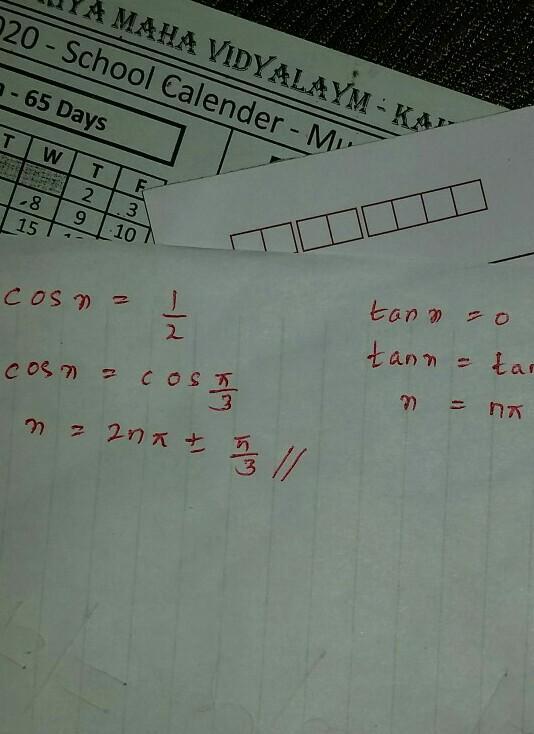 IYA MAHA VIDYALAYM - KA
020 - School Calender - Mu
- 65 Days
T W T F
2 3
8 9 10
15
cos x = 1/2
cos x = cos π/3
x = 2nπ ± π/3 //
tan x = 0
tan x = tan
x = nπ